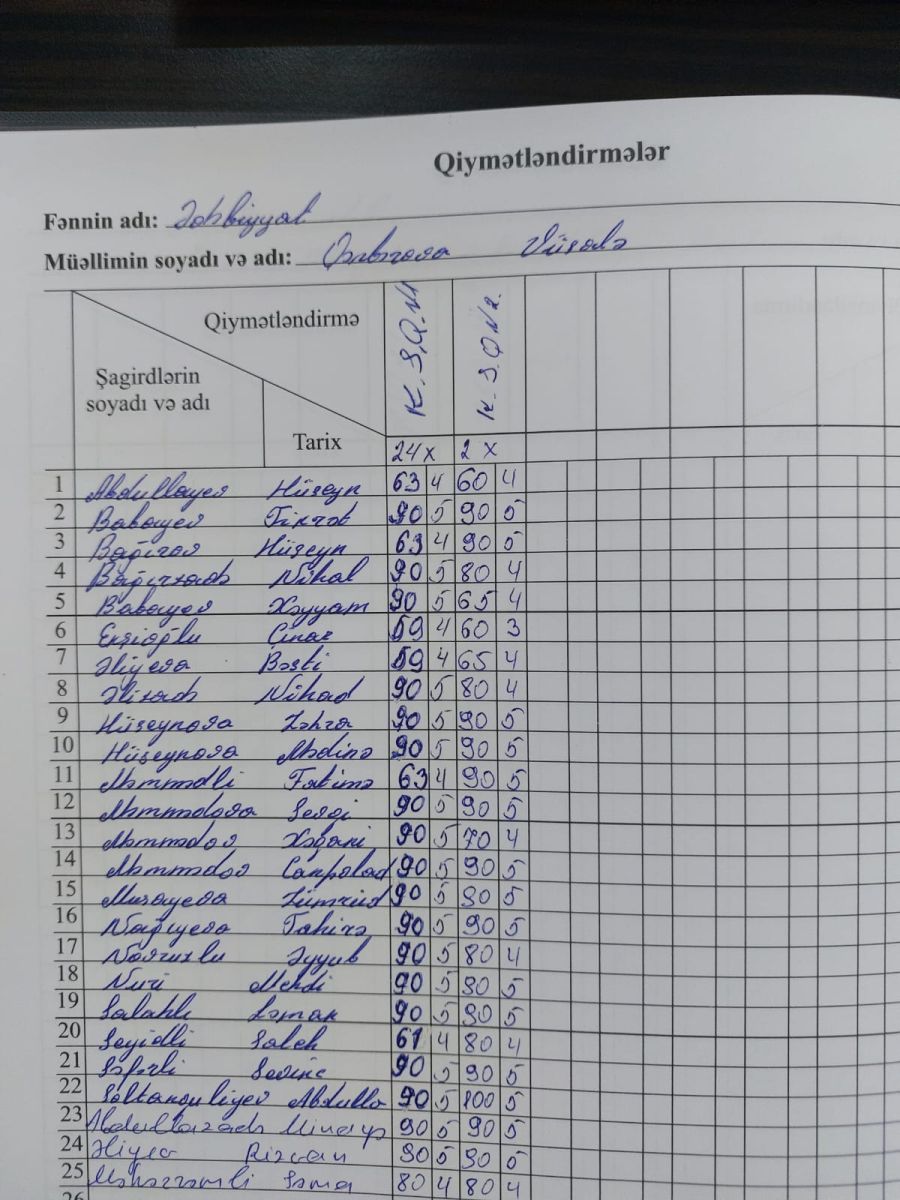 Qiymətləndirmələr
Fənnin adı: Ədəbiyyat
Müəllimin soyadı və adı: Qənbərova Vüsalə
Qiymətləndirmə
K.S.Q.№1 K.S.Q№2.
Şagirdlərin
soyadı və adı
Tarix
24 X 2 X
1 Abdullayev Hüseyn 63 4 60 4
2 Babayev Fikrət 90 5 90 5
3 Bağırov Hüseyn 63 4 90 5
4 Bağırzadə Nihal 90 5 80 4
5 Babayev Xəyyam 90 5 65 4
6 Ekşioğlu Çınar 59 4 60 3
7 Əliyeva Bəsti 59 4 65 4
8 Əlizadə Nihad 90 5 80 4
9 Hüseynova Zəhra 90 5 90 5
10 Hüseynova Mədinə 90 5 90 5
11 Məmmədli Fatimə 63 4 90 5
12 Məmmədova Sevgi 90 5 90 5
13 Məmmədov Xəqani 90 5 70 4
14 Məmmədov Canpolad 90 5 90 5
15 Musayeva Zümrüd 90 5 90 5
16 Nağıyeva Tahirə 90 5 90 5
17 Novruzlu Əyyub 90 5 80 4
18 Nuri Mehdi 90 5 90 5
19 Salahlı Ləman 90 5 90 5
20 Seyidli Saleh 61 4 80 4
21 Səfərli Sevinc 90 5 90 5
22 Soltanquliyev Abdulla 90 5 100 5
23 Abdullazadə Minayə 90 5 90 5
24 Əliyev Rizvan 90 5 90 5
25 Məhərrəmli Səma 80 4 80 4
26